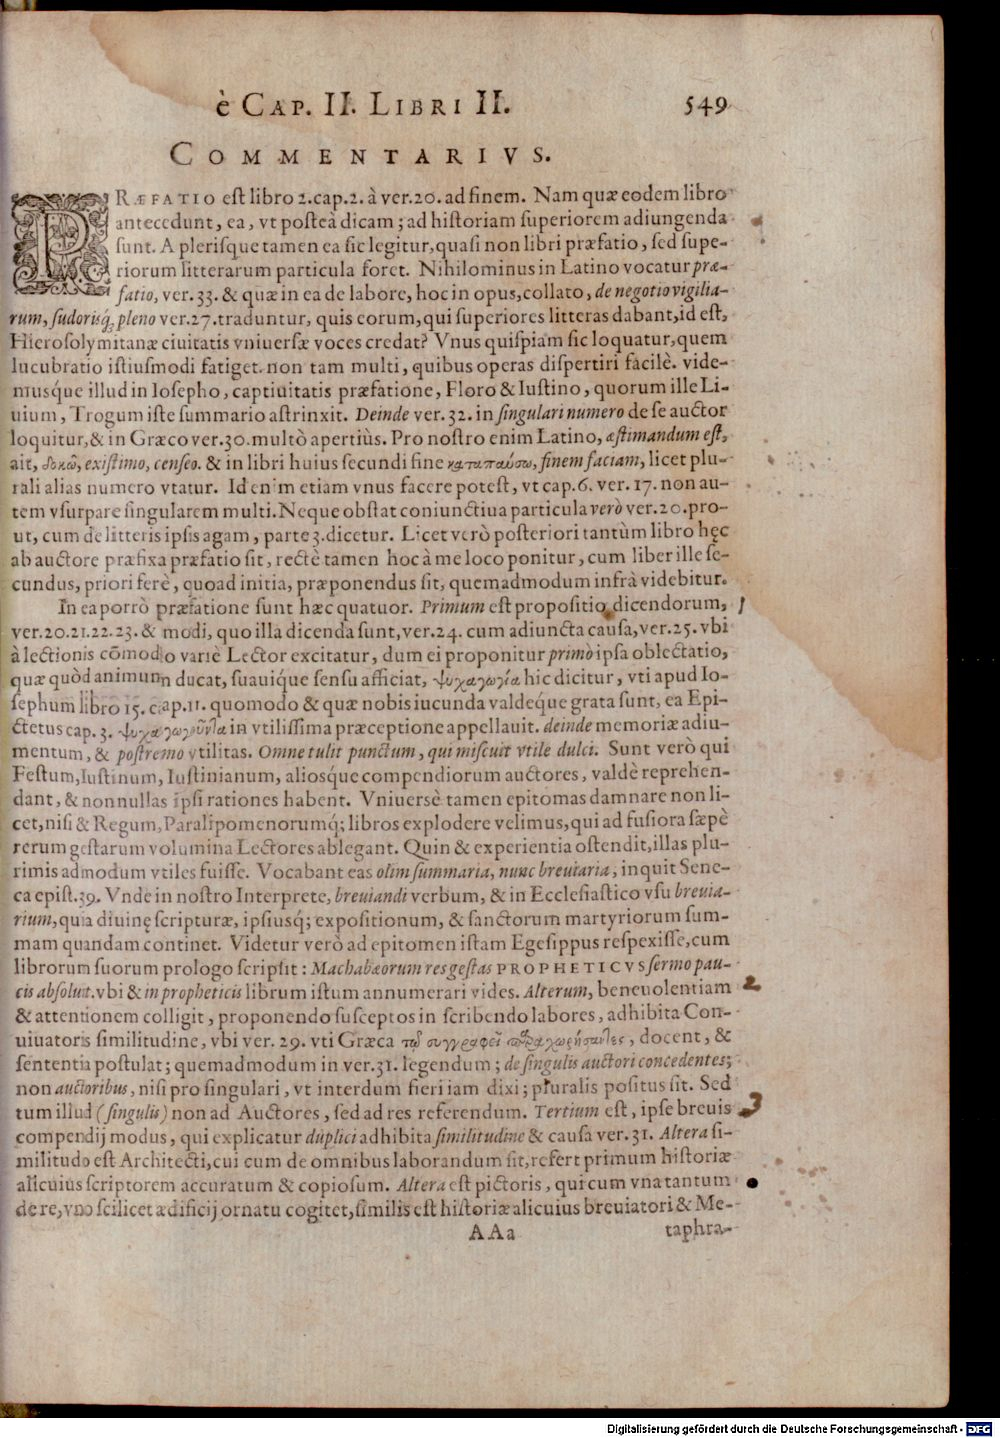 è CAP. II. LIBRI II. 549
COMMENTARIVS.
PRÆFATIO est libro 2. cap. 2. à ver. 20. ad finem. Nam quæ eodem libro
antecedunt, ea, vt posteà dicam; ad historiam superiorem adiungenda
sunt. A plerisque tamen ea sic legitur, quasi non libri præfatio, sed supe-
riorum litterarum particula foret. Nihilominus in Latino vocatur præ-
fatio, ver. 33. & quæ in ea de labore, hoc in opus, collato, de negotio vigilia-
rum, sudorisq; pleno ver. 27. traduntur, quis eorum, qui superiores litteras dabant, id est,
Hierosolymitanæ ciuitatis vniuersæ voces credat? Vnus quispiam sic loquatur, quem
lucubratio istiusmodi fatiget. non tam multi, quibus operas dispertiri facilè. vide-
musque illud in Iosepho, captiuitatis præfatione, Floro & Iustino, quorum ille Li-
uium, Trogum iste summario astrinxit. Deinde ver. 32. in singulari numero de se auctor
loquitur, & in Græco ver. 30. multò apertiùs. Pro nostro enim Latino, æstimandum est,
ait, δοκῶ, existimo, censeo. & in libri huius secundi fine καταπαύσω, finem faciam, licet plu-
rali alias numero vtatur. Id enim etiam vnus facere potest, vt cap. 6. ver. 17. non au-
tem vsurpare singularem multi. Neque obstat coniunctiua particula verò ver. 20. pro-
ut, cum de litteris ipsis agam, parte 3. dicetur. Licet verò posteriori tantùm libro hęc
ab auctore præfixa præfatio sit, rectè tamen hoc à me loco ponitur, cum liber ille se-
cundus, priori ferè, quoad initia, præponendus sit, quemadmodum infrà videbitur.
In ea porrò præfatione sunt hæc quatuor. Primum est propositio dicendorum, 1
ver. 20. 21. 22. 23. & modi, quo illa dicenda sunt, ver. 24. cum adiuncta causa, ver. 25. vbi
à lectionis cōmodo variè Lector excitatur, dum ei proponitur primò ipsa oblectatio,
quæ quòd animum ducat, suauique sensu afficiat, ψυχαγωγία hic dicitur, vti apud Io-
sephum libro 15. cap. 11. quomodo & quæ nobis iucunda valdeque grata sunt, ea Epi-
ctetus cap. 3. ψυχαγωγοῦντα in vtilissima præceptione appellauit. deinde memoriæ adiu-
mentum, & postremo vtilitas. Omne tulit punctum, qui miscuit vtile dulci. Sunt verò qui
Festum, Iustinum, Iustinianum, aliosque compendiorum auctores, valdè reprehen-
dant, & nonnullas ipsi rationes habent. Vniuersè tamen epitomas damnare non li-
cet, nisi & Regum, Paralipomenorumq; libros explodere velimus, qui ad fusiora sæpè
rerum gestarum volumina Lectores ablegant. Quin & experientia ostendit, illas plu-
rimis admodum vtiles fuisse. Vocabant eas olim summaria, nunc breuiaria, inquit Sene-
ca epist. 39. Vnde in nostro Interprete, breuiandi verbum, & in Ecclesiastico vsu breuia-
rium, quia diuinę scripturæ, ipsiusq; expositionum, & sanctorum martyriorum sum-
mam quandam continet. Videtur verò ad epitomen istam Egesippus respexisse, cum
librorum suorum prologo scripsit: Machabæorum res gestas PROPHETICVS sermo pau-
cis absoluit. vbi & in propheticis librum istum annumerari vides. Alterum, beneuolentiam 2
& attentionem colligit, proponendo susceptos in scribendo labores, adhibita Con-
uiuatoris similitudine, vbi ver. 29. vti Græca τῷ συγγραφεῖ παραχωρήσαντες, docent, &
sententia postulat; quemadmodum in ver. 31. legendum; de singulis auctori concedentes;
non auctoribus, nisi pro singulari, vt interdum fieri iam dixi; pluralis positus sit. Sed
tum illud (singulis) non ad Auctores, sed ad res referendum. Tertium est, ipse breuis 3
compendij modus, qui explicatur duplici adhibita similitudine & causa ver. 31. Altera si-
militudo est Architecti, cui cum de omnibus laborandum sit, refert primum historiæ
alicuius scriptorem accuratum & copiosum. Altera est pictoris, qui cum vna tantum
de re, vno scilicet ædificij ornatu cogitet, similis est historiæ alicuius breuiatori & Me-
AAa taphra-
Digitalisierung gefördert durch die Deutsche Forschungsgemeinschaft - DFG